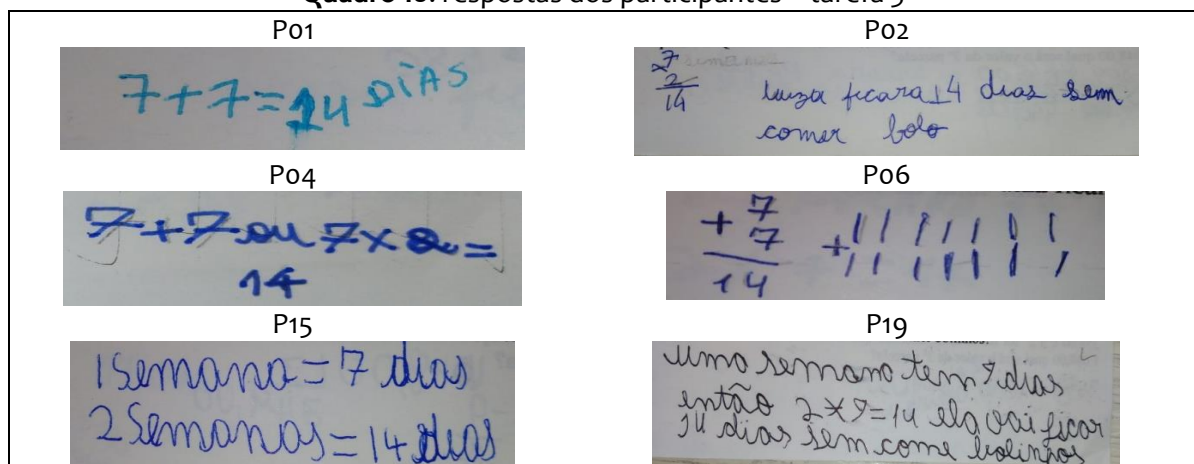 Quadro 10: respostas dos participantes – tarefa 5
P01
P02
7+7=14 DÍAS
7
x2
14
luiza ficara 14 dias sem
comer bolo
P04
P06
7+7 ou 7x2=
14
+ 7
7
14
+
P15
P19
1 Semana = 7 dias
2 Semanas = 14 dias
uma semana tem 7 dias
então 2x7=14 ela vai ficar
14 dias sem come bolinhos